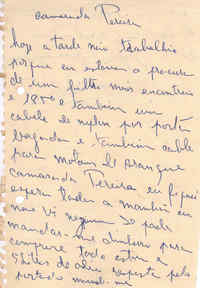 camarada Pereira
hoje a tarde não trabalho
porque eu estava a procura
de um filtro mas encontrei
e 1850 e também um
cabelo de nylon por
e também cabelo
para motam de Aranque
camarada Pereira eu fiquei
espera todas a manhã eu
não vi negum so pode
mandar-me dinheiro para
comprere todo esta
5 litros de oleo resposta pelo
portado